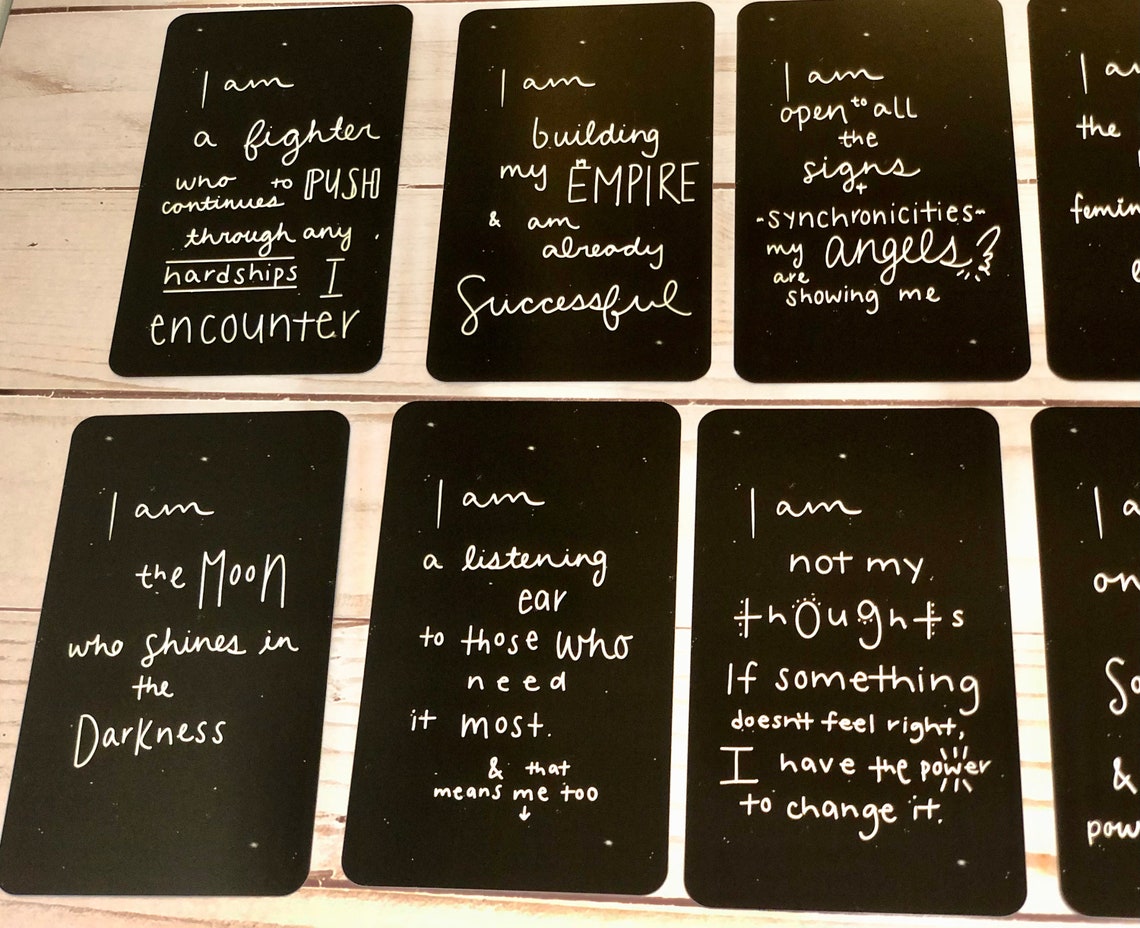 I am
a fighter
who continues to PUSH
through any
hardships I
encounter
I am
building
my EMPIRE
& am
already
Successful
I am
open to all
the
signs
+
-synchronicities-
my angels
are
showing me
I am
the
I am
the Moon
who shines in
the
Darkness
I am
a listening
ear
to those who
need
it most.
& that
means me too
↓
I am
not my
thoughts
If something
doesn't feel right,
I have the power
to change it.
I
on
&